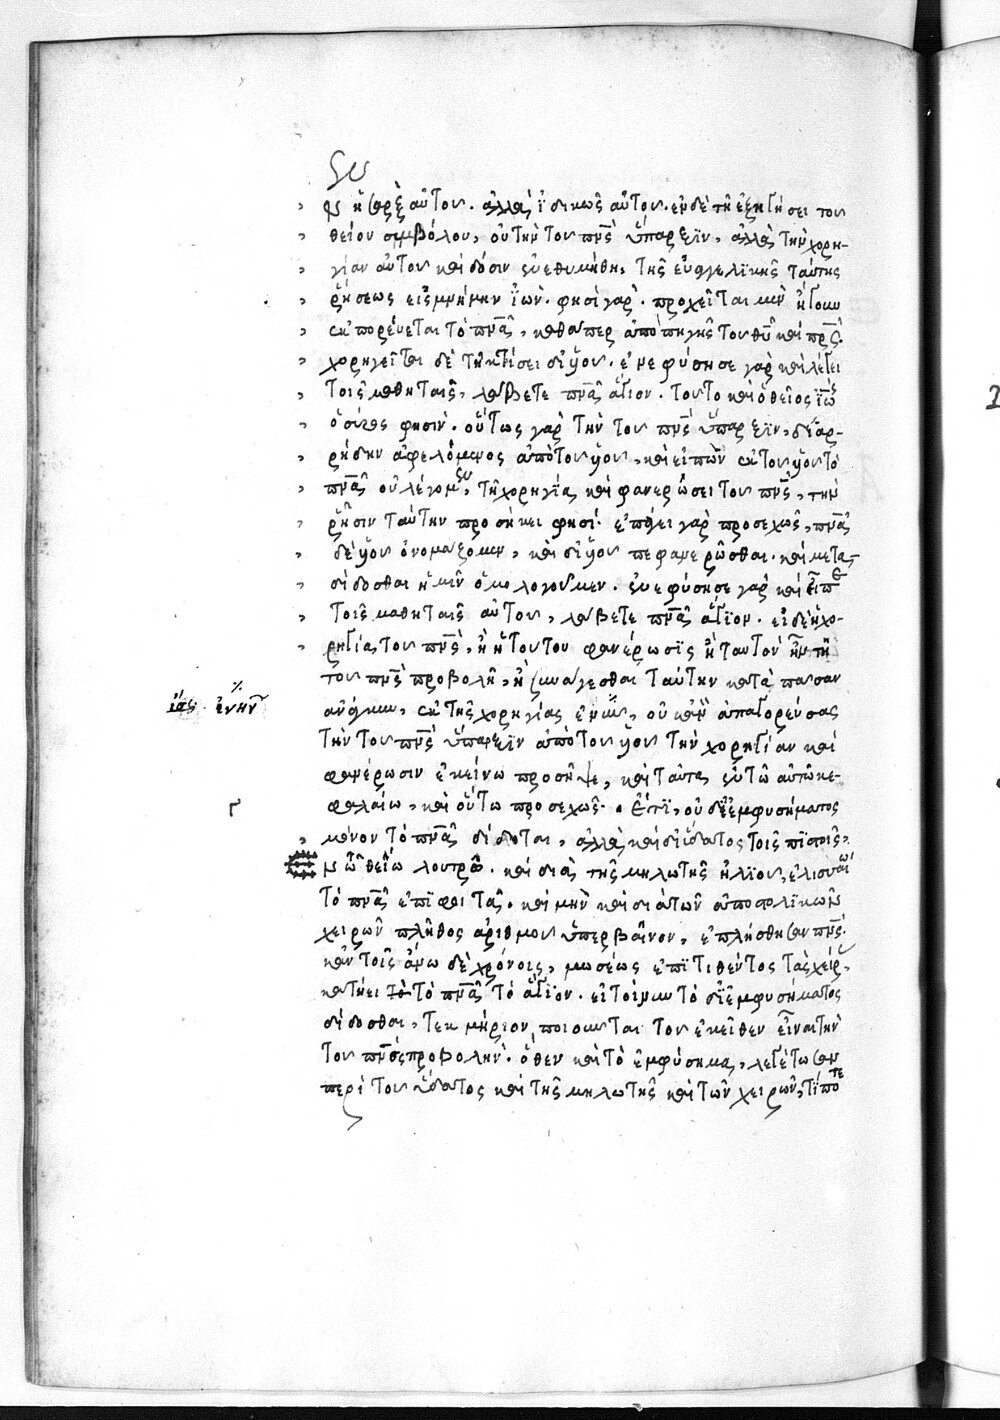 ἡ σὰρξ αὐτοῦ. ἀλλὰ ἰδικῶς αὐτοῦ. ἐν δὲ τῇ ἐξηγήσει τοῦ
θείου συμβόλου, οὐ τὴν τοῦ πνς ὕπαρξϊν, ἀλλὰ τὴν χορη-
γίαν αὐτοῦ καὶ δόσιν ἐνεθυμήθη, τῆς εὐαγγελϊκῆς ταύτης
ῥήσεως εἰς μνήμην ἰών. φησὶ γάρ. προχεῖται μὲν ἤγουν
ἐκπορεύεται τὸ πνα, καθάπερ ἀπὸ πηγῆς τοῦ θυ καὶ πρς.
χορηγεῖται δὲ τῇ κτίσει δι' υου. ἐνεφύσησε γὰρ καὶ λέγει
τοῖς μαθηταῖς, λάβετε πνα ἅγιον. τοῦτο καὶ ὁ θεῖος ιω
φησίν. οὕτως γὰρ τὴν τοῦ πνς ὕπαρξϊν, διαρ-
ρήδην ἀφελόμενος ἀπὸ τοῦ υου, καὶ εἰπὼν ἐκ τοῦ υου τὸ
πνα οὐ λέγομεν, τῇ χορηγίᾳ καὶ φανερώσει τοῦ πνς, τὴν
ῥῆσιν ταύτην προσήκει φησί. ἐπάγει γὰρ προσεχῶς, πνα
δὲ υου ὀνομάζομεν, καὶ δι' υου πεφανερῶσθαι. καὶ μετα-
δίδοσθαι ἡμῖν ὁμολογοῦμεν. ἐνεφύσησε γὰρ καὶ εἶπε
τοῖς μαθηταῖς αὐτοῦ, λάβετε πνα ἅγϊον. εἰ δὲ ἡ χο-
ρηγία τοῦ πνς, ἢ ἡ τούτου φανέρωσϊς ἢ ταυτὸν ἦν τῇ
τοῦ πνς προβολῇ, ἢ συνάγεσθαι ταύτην κατὰ πᾶσαν
ἀνάγκην, ἐκ τῆς χορηγίας ἐνῆν, οὐκ ἂν ἀπαγορεύσας
τὴν τοῦ πνς ὕπαρξϊν ἀπὸ τοῦ υου τὴν χορηγίαν καὶ
φανέρωσιν ἐκείνῳ προσῆψε, καὶ ταῦτα ἐν τῷ αὐτῷ κε-
φαλαίῳ, καὶ οὕτω προσεχῶς. Ἔτι, οὐ δι' ἐμφυσήματος
μόνον τὸ πνα δίδοται, ἀλλὰ καὶ δι' ὕδατος τοῖς πϊστοῖς,
ἐν τῷ θείῳ λουτρῷ. καὶ διὰ τῆς μηλωτῆς ἠλϊοῦ, ἐλισσαίῳ
τὸ πνα ἐπϊφοιτᾷ. καὶ μὴν καὶ διὰ τῶν ἀποστολικῶν
χειρῶν πλῆθος ἀριθμοῦ ὑπερβαῖνον, ἐπλήσθησαν πνς.
κἂν τοῖς ἄνω δὲ χρόνοις, μωσέως ἐπϊτιθέντος τὰς χεῖρας,
κατῄει τὸ πνα τὸ ἅγϊον. εἰ τοίνυν τὸ δι' ἐμφυσήματος
δίδοσθαι, τεκμήριον ποιοῦνται τοῦ ἐκεῖθεν εἶναι τὴν
τοῦ πνς προβολήν. ὅθεν καὶ τὸ ἐμφύσημα, λεγέτωσαν
περὶ τοῦ ὕδατος καὶ τῆς μηλωτῆς καὶ τῶν χειρῶν, τί ποτε
ἐνῆν